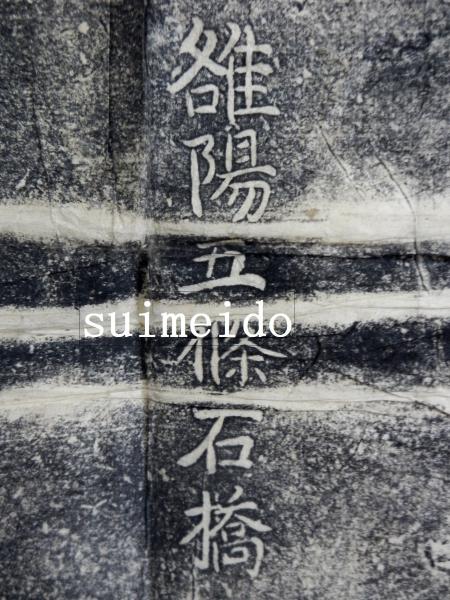 雒陽五條石橋
suimeido